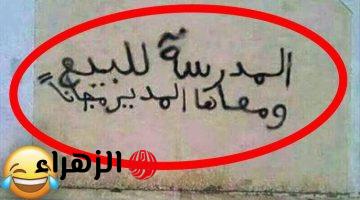 المدرسة للبيع
ومعاها المدير مجاناً
الزهراء